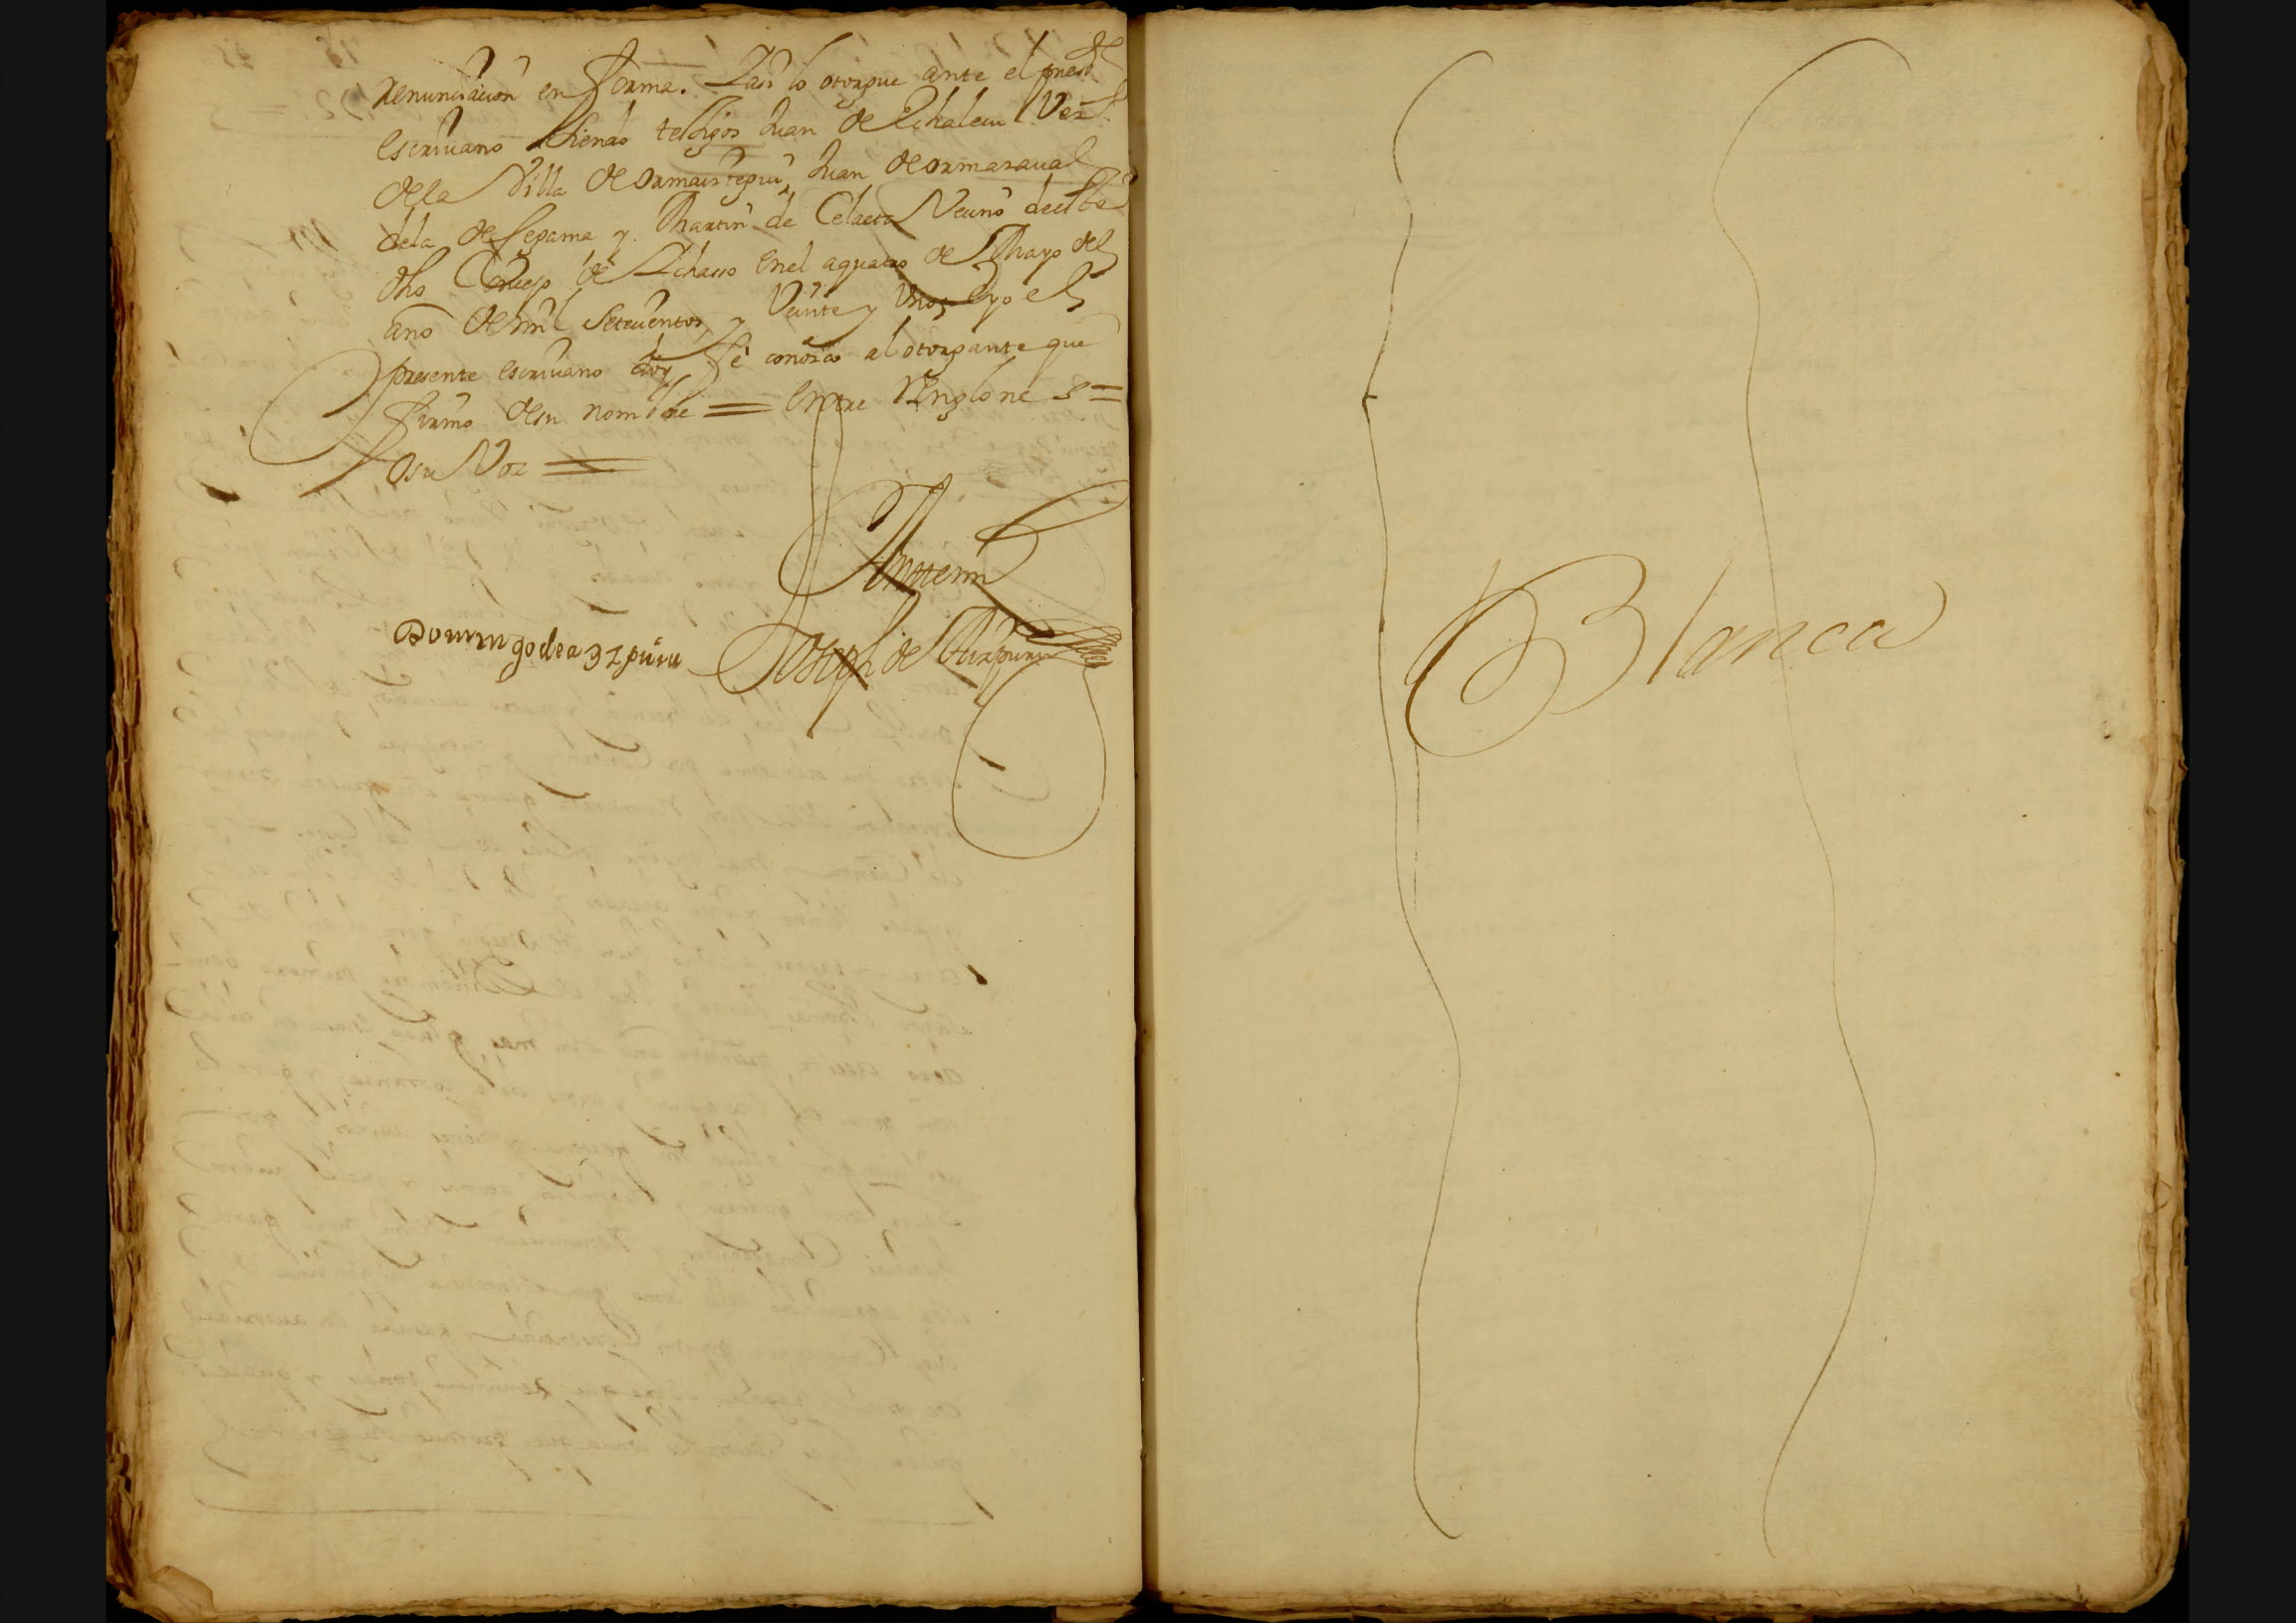 renunciacion en forma. Y asi lo otorgue ante el press.te
escriuano siendo testigos Juan de Echalecu Vez.o
de la Villa de Ormaiztegui, Juan de Ormazaual
dela de segama y Martin de Celaeta Vecino deeste
dho Concejo de Ichasso en el a quatro de Mayo del
año de mil setecientos y Veinte y Vno, E yo el
presente escriuano doy fe conozco al otorgante que
firmo de su nombre = entre Renglones =
o su Voz =
Ante mi
Domingo de
Joseph de
Blanca